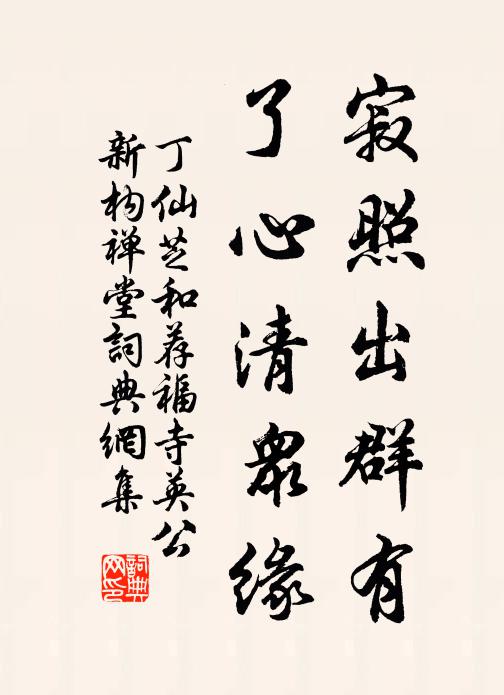 寂照出群有
了心清眾緣
丁仙芝和荐福寺英公
新构禅堂詞典網集
詞典
网印